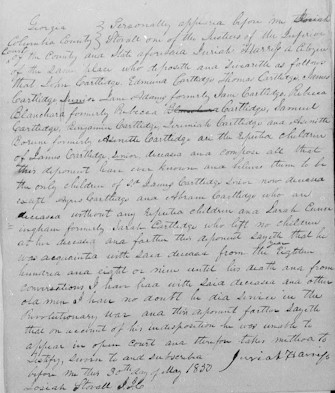 Georgia } Personally appeared before me Josiah
Columbia County } Stovall one of the Justices of the Inferior
Court of the County and State aforesaid Uriah Harriss a Citizen
of the same place who deposeth and sweareth as follows
that John Cartledge, Edmund Cartledge Thomas Cartledge, James
Cartledge Junior Jane Adams formerly Jane Cartledge Rebecca
Blanchard formerly Rebecca Cartledge, Samuel
Cartledge, Benjamin Cartledge Jeremiah Cartledge and
Corum formerly Cartledge are the reputed children
of James Cartledge, Senior deceased and compose all that
this deponent have ever known and believe them to be
the only children of Sd James Cartledge Senior now deceased
except Agnes Cartledge and Abram Cartledge who are
deceased without any reputed children and Sarah
formerly Sarah Cartledge who left no children
at her decease and farther this deponent sayeth that he
was acquainted with said deceased from the year Eighteen
hundred and eight or nine until his death and from
conversations I have had with said deceased and other
old men I have no doubt he did service in the
Revolutionary war and this deponent farther sayeth
that on account of his indisposition he was unable to
appear in open court and therefore takes method to
testify, sworn to and subscribed
before me this 30th day of May 1850 Uriah Harriss
Josiah Stovall J.I.C